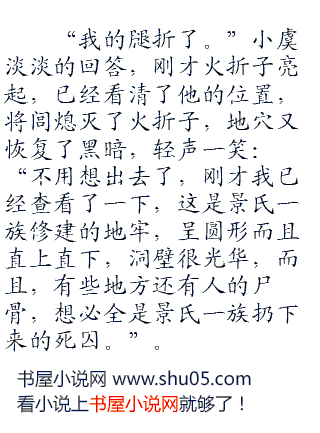 “我的腿折了。”小虞
淡淡的回答，刚才火折子亮
起，已经看清了他的位置，
将闾熄灭了火折子，地穴又
恢复了黑暗，轻声一笑：
“不用想出去了，刚才我已
经查看了一下，这是景氏一
族修建的地牢，呈圆形而且
直上直下，洞壁很光华，而
且，有些地方还有人的尸
骨，想必全是景氏一族扔下
来的死囚。”。
书屋小说网 www.shu05.com
看小说上书屋小说网就够了！